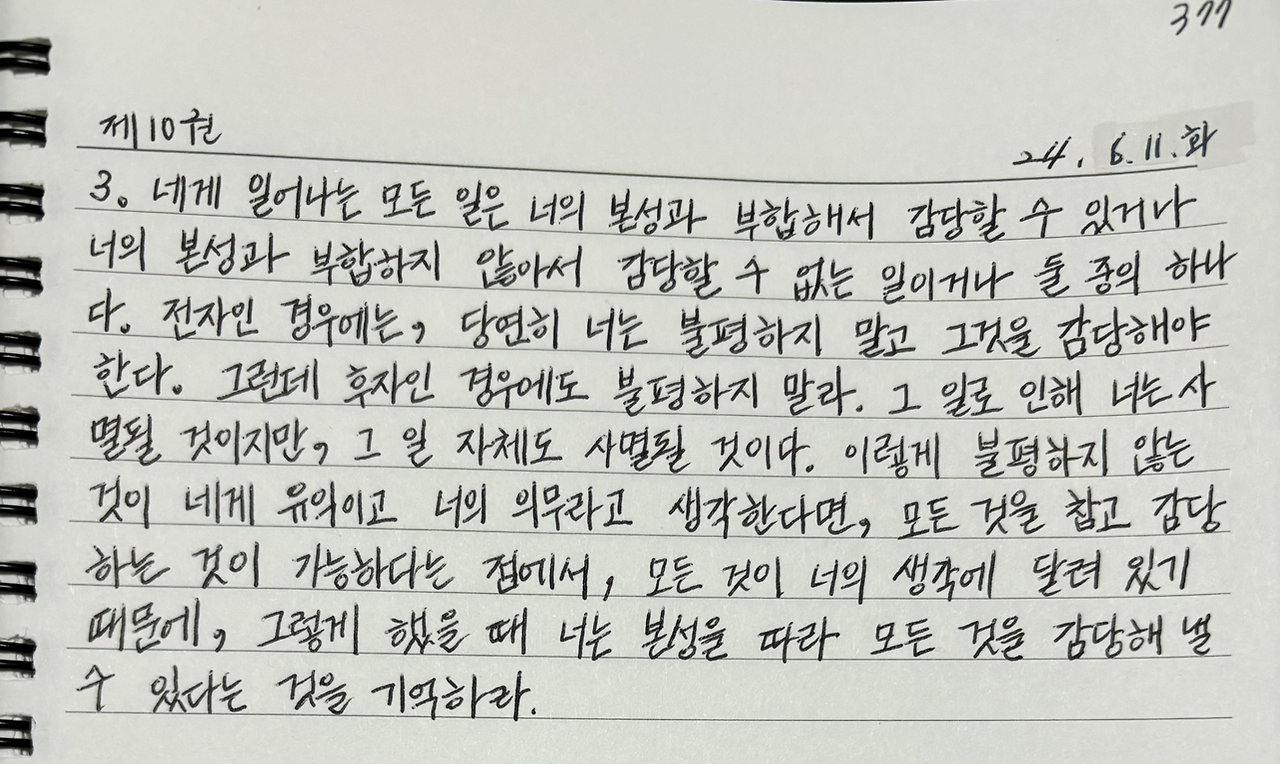 377
제10권
24. 6. 11. 화
3. 네게 일어나는 모든 일은 너의 본성과 부합해서 감당할 수 있거나
너의 본성과 부합하지 않아서 감당할 수 없는 일이거나 둘 중의 하나
다. 전자인 경우에는, 당연히 너는 불평하지 말고 그것을 감당해야
한다. 그런데 후자인 경우에도 불평하지 말라. 그 일로 인해 너는 사
멸될 것이지만, 그 일 자체도 사멸될 것이다. 이렇게 불평하지 않는
것이 네게 유익이고 너의 의무라고 생각한다면, 모든 것을 참고 감당
하는 것이 가능하다는 점에서, 모든 것이 너의 생각에 달려 있기
때문에, 그렇게 했을 때 너는 본성을 따라 모든 것을 감당해 낼
수 있다는 것을 기억하라.